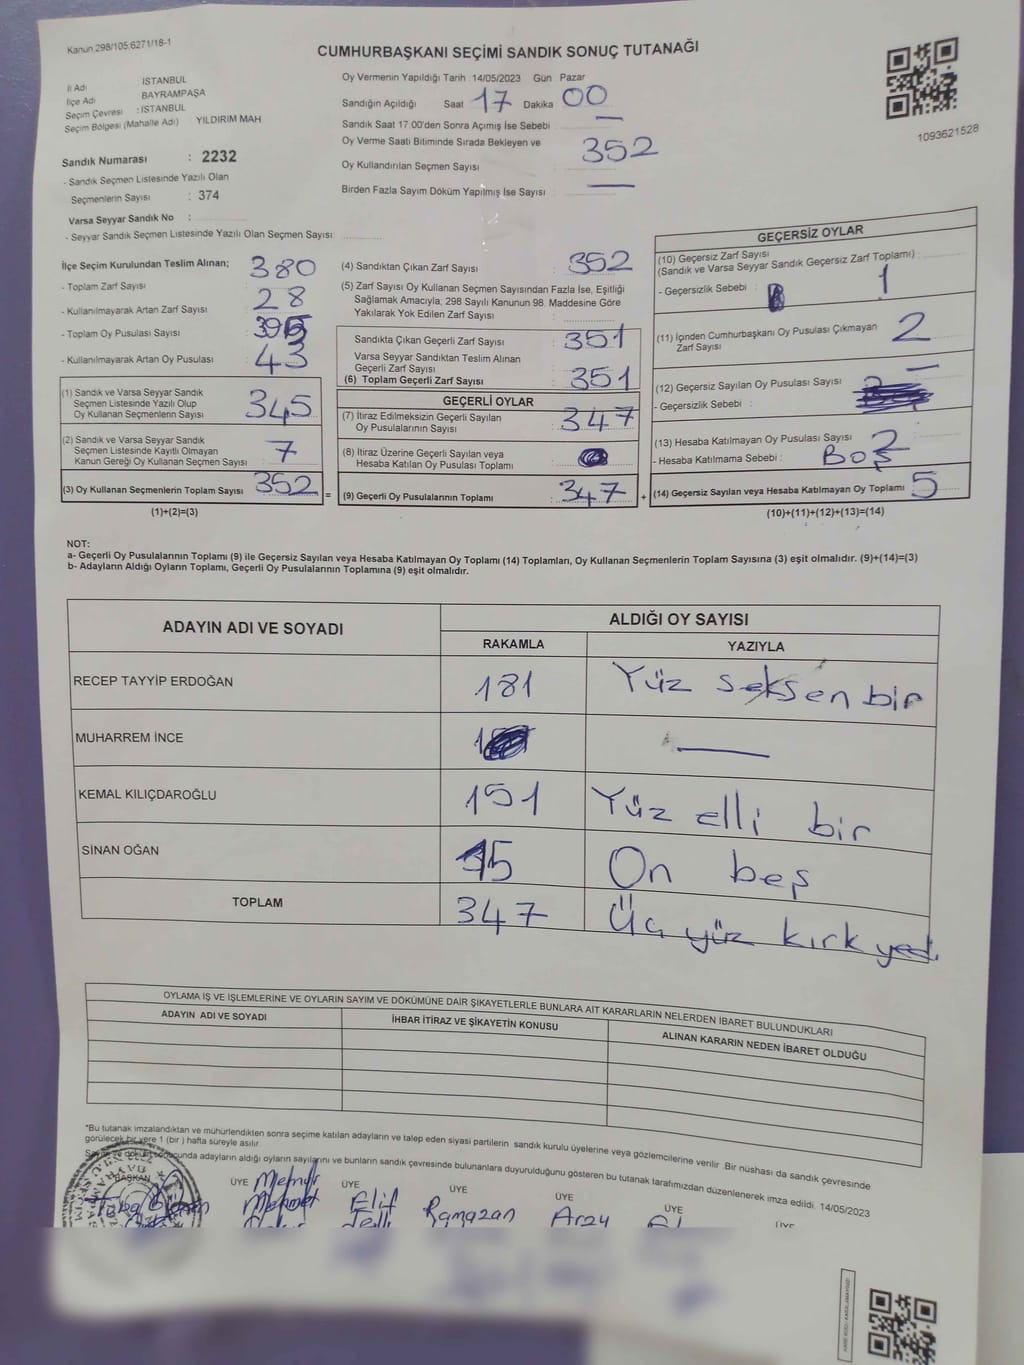 Kanun 298/105;6271/18-1
CUMHURBAŞKANI SEÇİMİ SANDIK SONUÇ TUTANAĞI
İl Adı İSTANBUL
İlçe Adı BAYRAMPAŞA
Seçim Çevresi : İSTANBUL
Seçim Bölgesi (Mahalle Adı) YILDIRIM MAH
Sandık Numarası : 2232
- Sandık Seçmen Listesinde Yazılı Olan
Seçmenlerin Sayısı : 374
Varsa Seyyar Sandık No :
- Seyyar Sandık Seçmen Listesinde Yazılı Olan Seçmen Sayısı:
Oy Vermenin Yapıldığı Tarih 14/05/2023 Gün Pazar
Sandığın Açıldığı Saat 17 Dakika 00
Sandık Saat 17:00'den Sonra Açımış İse Sebebi : —
Oy Verme Saati Bitiminde Sırada Bekleyen ve
Oy Kullandırılan Seçmen Sayısı : 352
Birden Fazla Sayım Döküm Yapılmış İse Sayısı : —
1093621528
İlçe Seçim Kurulundan Teslim Alınan;
- Toplam Zarf Sayısı : 380
- Kullanılmayarak Artan Zarf Sayısı : 28
- Toplam Oy Pusulası Sayısı :
- Kullanılmayarak Artan Oy Pusulası : 43
(1) Sandık ve Varsa Seyyar Sandık
Seçmen Listesinde Yazılı Olup
Oy Kullanan Seçmenlerin Sayısı : 345
(2) Sandık ve Varsa Seyyar Sandık
Seçmen Listesinde Kayıtlı Olmayan
Kanun Gereği Oy Kullanan Seçmen Sayısı : 7
(3) Oy Kullanan Seçmenlerin Toplam Sayısı : 352 =
(1)+(2)=(3)
(4) Sandıktan Çıkan Zarf Sayısı : 352
(5) Zarf Sayısı Oy Kullanan Seçmen Sayısından Fazla İse, Eşitliği
Sağlamak Amacıyla; 298 Sayılı Kanunun 98. Maddesine Göre
Yakılarak Yok Edilen Zarf Sayısı :
Sandıkta Çıkan Geçerli Zarf Sayısı : 351
Varsa Seyyar Sandıktan Teslim Alınan
Geçerli Zarf Sayısı :
(6) Toplam Geçerli Zarf Sayısı : 351
GEÇERLİ OYLAR
(7) İtiraz Edilmeksizin Geçerli Sayılan
Oy Pusulalarının Sayısı : 347
(8) İtiraz Üzerine Geçerli Sayılan veya
Hesaba Katılan Oy Pusulası Toplamı :
(9) Geçerli Oy Pusulalarının Toplamı : 347 +
GEÇERSİZ OYLAR
(10) Geçersiz Zarf Sayısı
(Sandık ve Varsa Seyyar Sandık Geçersiz Zarf Toplamı) :
- Geçersizlik Sebebi : 1
(11) İçinden Cumhurbaşkanı Oy Pusulası Çıkmayan
Zarf Sayısı : 2
(12) Geçersiz Sayılan Oy Pusulası Sayısı : —
- Geçersizlik Sebebi :
(13) Hesaba Katılmayan Oy Pusulası Sayısı : 2
- Hesaba Katılmama Sebebi : BOŞ
(14) Geçersiz Sayılan veya Hesaba Katılmayan Oy Toplamı : 5
(10)+(11)+(12)+(13)=(14)
NOT:
a- Geçerli Oy Pusulalarının Toplamı (9) ile Geçersiz Sayılan veya Hesaba Katılmayan Oy Toplamı (14) Toplamları, Oy Kullanan Seçmenlerin Toplam Sayısına (3) eşit olmalıdır. (9)+(14)=(3)
b- Adayların Aldığı Oyların Toplamı, Geçerli Oy Pusulalarının Toplamına (9) eşit olmalıdır.
ADAYIN ADI VE SOYADI
ALDIĞI OY SAYISI
RAKAMLA YAZIYLA
RECEP TAYYİP ERDOĞAN 181 Yüz seksen bir
MUHARREM İNCE —
KEMAL KILIÇDAROĞLU 151 Yüz elli bir
SİNAN OĞAN 15 On beş
TOPLAM 347 Üç yüz kırk yedi
OYLAMA İŞ VE İŞLEMLERİNE VE OYLARIN SAYIM VE DÖKÜMÜNE DAİR ŞİKAYETLERLE BUNLARA AİT KARARLARIN NELERDEN İBARET BULUNDUKLARI
ADAYIN ADI VE SOYADI İHBAR İTİRAZ VE ŞİKAYETİN KONUSU ALINAN KARARIN NEDEN İBARET OLDUĞU
*Bu tutanak imzalandıktan ve mühürlendikten sonra seçime katılan adayların ve talep eden siyasi partilerin sandık kurulu üyelerine veya gözlemcilerine verilir .Bir nüshası da sandık çevresinde
görülecek bir yere 1 (bir ) hafta süreyle asılır.
Sayım ve döküm sonucunda adayların aldığı oyların sayılarını ve bunların sandık çevresinde bulunanlara duyurulduğunu gösteren bu tutanak tarafımızdan düzenlenerek imza edildi. 14/05/2023
BAŞKAN ÜYE ÜYE ÜYE ÜYE ÜYE ÜYE
Memur
Mehmet Elif Ramazan Arzu